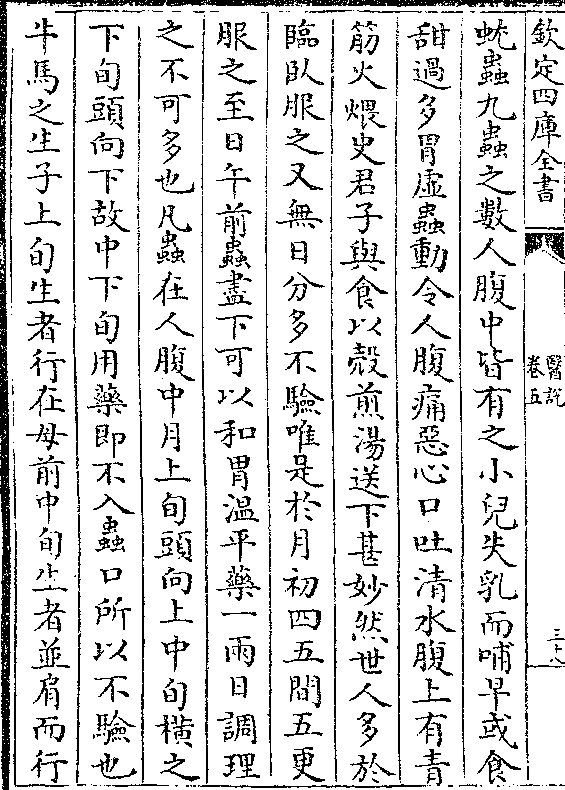 欽定四庫全書
醫說
卷五
三十八
蚘蟲九蟲之數人腹中皆有之小兒失乳而哺早或食
甜過多胃虛蟲動令人腹痛惡心口吐清水腹上有青
筋火煨史君子與食以殼煎湯送下甚妙然世人多於
臨臥服之又無日分多不驗唯是於月初四五間五更
服之至日午前蟲盡下可以和胃溫平藥一兩日調理
之不可多也凡蟲在人腹中月上旬頭向上中旬橫之
下旬頭向下故中下旬用藥即不入蟲口所以不驗也
牛馬之生子上旬生者行在母前中旬生者並肩而行